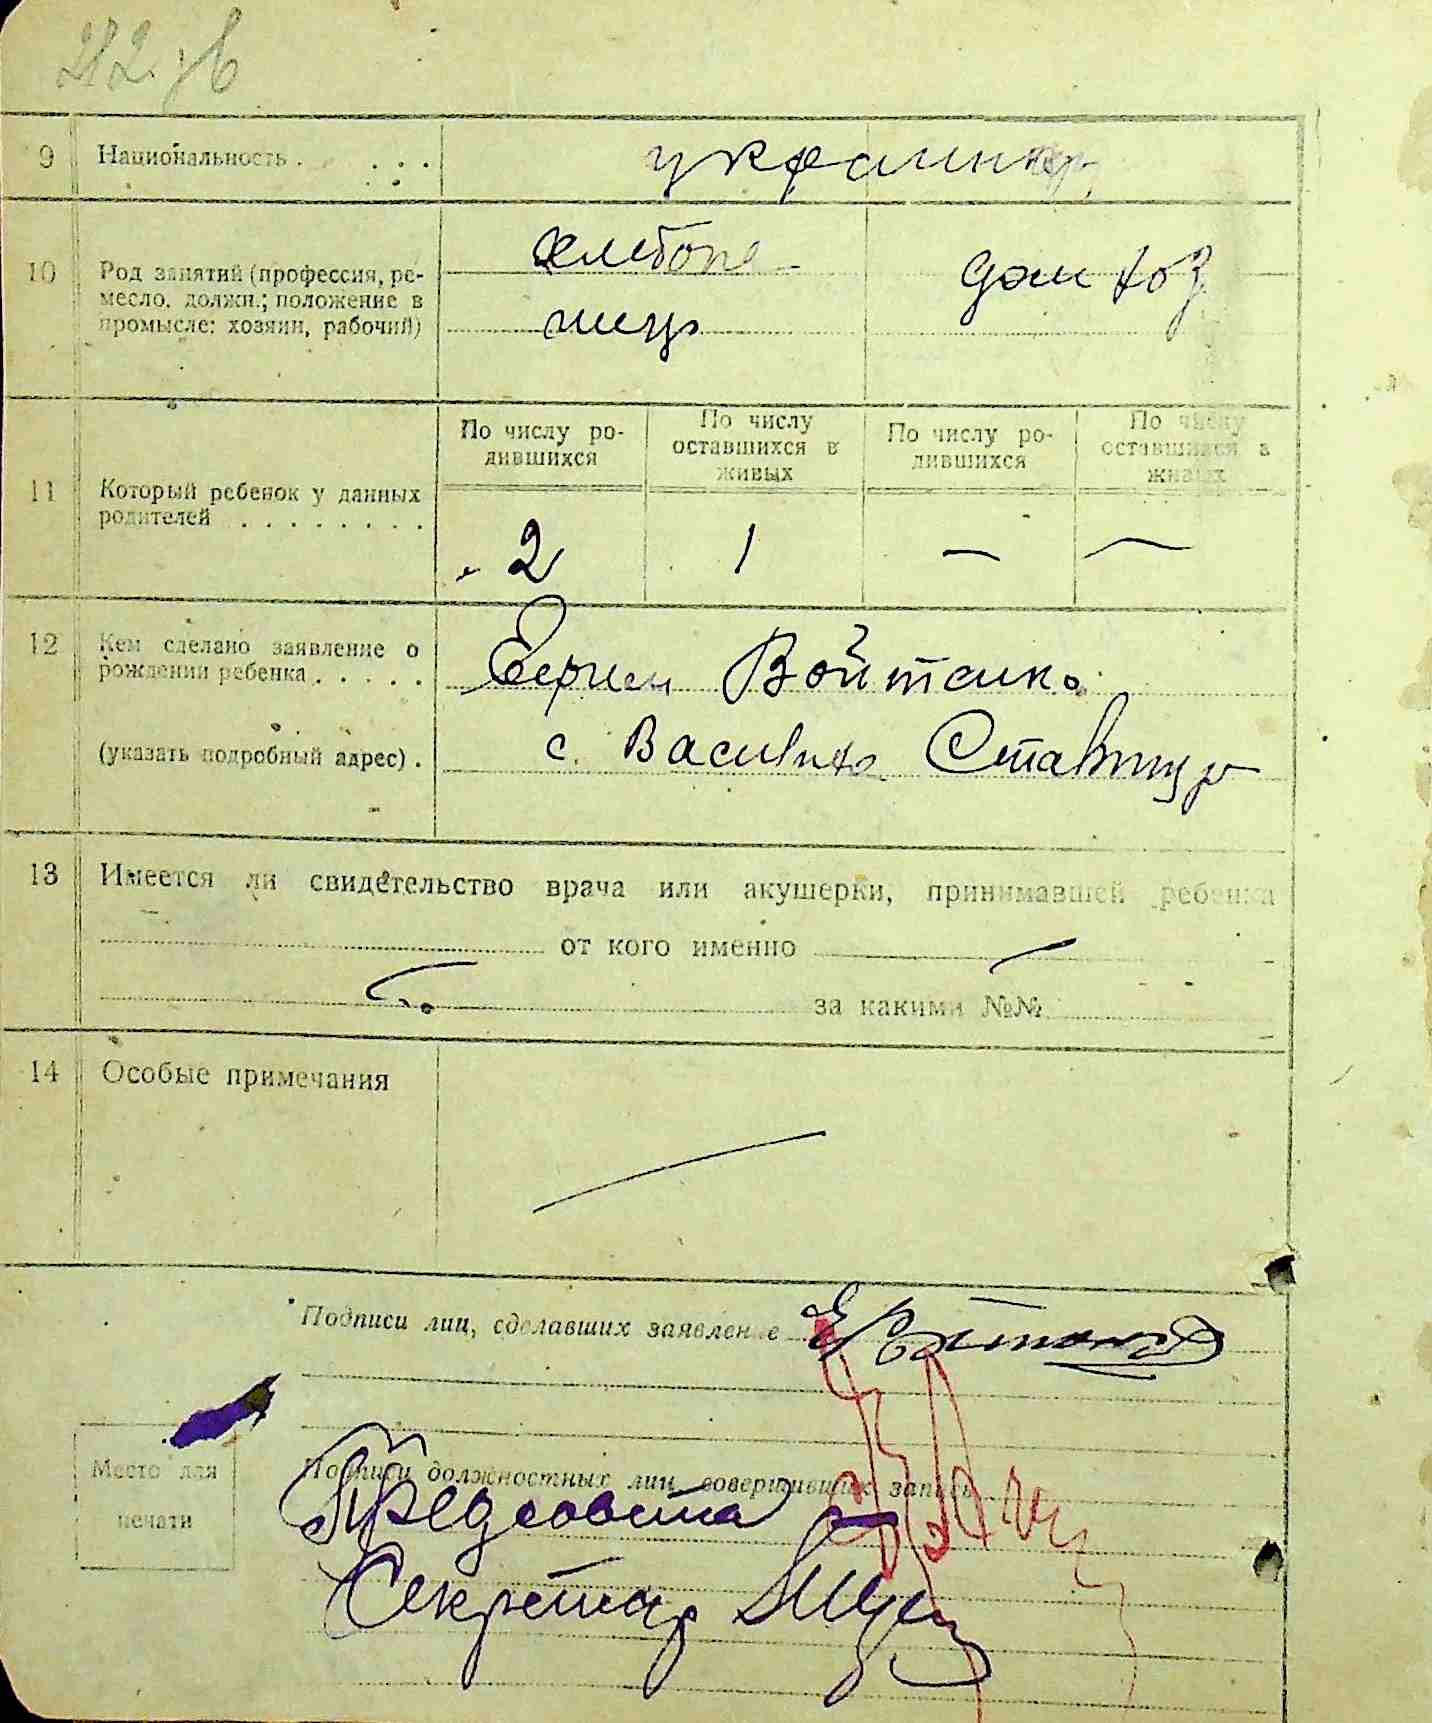 9 Национальность . . . . украинцы
10 Род занятий (профессия, ремесло, должн.; положение в промысле: хозяин, рабочий)
хлебопа-
шец
дом хоз
11 Который ребенок у данных родителей . . . . . . . .
По числу родившихся
По числу оставшихся в живых
По числу родившихся
По числу оставшихся в живых
2 1 — —
12 Кем сделано заявление о рождении ребенка . . . . .
(указать подробный адрес) .
Войтанко
с.
13 Имеется ли свидетельство врача или акушерки, принимавшей ребенка
от кого именно —
за какими №№
14 Особые примечания
Подписи лиц, сделавших заявление
Место для печати
Подписи должностных лиц, совершивших запись
Предсовета
Секретар